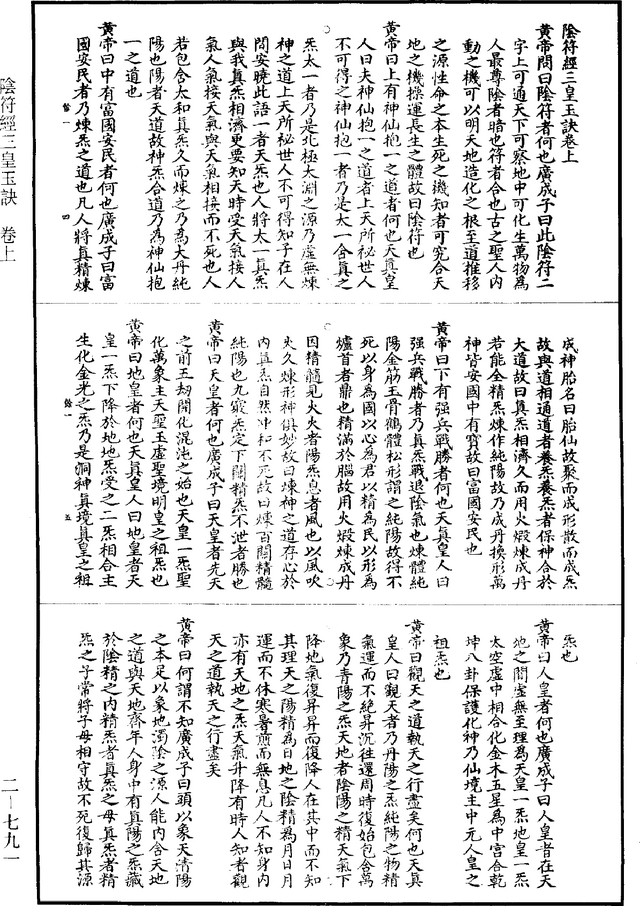 陰符經三皇玉訣卷上
黃帝問曰陰符者何也廣成子曰此陰符二
字上可通天下可察地中可化生萬物為
人最尊陰者暗也符者合也古之聖人內
動之機可以明天地造化之根至道推移
之源性命之本生死之機知者可究合天
地之機操運長生之體故曰陰符也
黃帝曰上有神仙抱一之道者何也天真皇
人曰夫神仙抱一之道者上天所祕世人
不可得之神仙抱一者乃是太一含真之
炁太一者乃是北極太淵之源乃虛無煉
神之道上天所祕世人不可得知子在人
間安曉此語一者天炁也人將太一真炁
與我真炁相濟更要知天時受天氣接人
氣人氣接天氣與天氣相接而不死也人
若包含太和真炁久而煉之乃為大丹純
陽也陽者天道故神炁合道乃為神仙抱
一之道也
黃帝曰中有富國安民者何也廣成子曰富
國安民者乃煉炁之道也凡人將真精煉
餘一 四
成神胎名曰胎仙故聚而成形散而成炁
故與道相通道者養炁養炁者保神合於
大道故曰真炁相濟久而用火煅煉成丹
若能全精炁煉作純陽故乃成丹換形萬
神皆安國中有寶故曰富國安民也
黃帝曰下有强兵戰勝者何也天真皇人曰
强兵戰勝者乃真炁戰退陰氣也煉體純
陽金筋玉骨鶴體松形謂之純陽故得不
死以身為國以心為君以精為民以形為
爐首者鼎也精滿於腦故用火煅煉成丹
因精髓見火火者陽炁息者風也以風吹
火久煉形神俱妙故曰煉神之道存心於
內真炁自然沖和不死故曰煉百關精髓
純陽也九竅炁定下關精炁不泄者勝也
黃帝曰天皇者何也廣成子曰天皇者先天
之前五劫開化混沌之始也天皇一炁聖
化萬象主天聖玉虛聖境明皇之祖炁也
黃帝曰地皇者何也天真皇人曰地皇者天
皇一炁下降於地地炁受之二炁相合主
生化金光之炁乃是洞神真境真皇之祖
餘一 五
炁也
黃帝曰人皇者何也廣成子曰人皇者在天
地之間虛無至理為天皇一炁地皇一炁
太空虛中相合化金木五星為中宮合乾
坤八卦保護化神乃仙境主中元人皇之
祖炁也
黃帝曰觀天之道執天之行盡矣何也天真
皇人曰觀天者乃丹陽之炁純陽之物精
氣運而不絕昇沉往還周時復始包含萬
象乃青陽之炁天地者陰陽之精天氣下
降地氣復昇昇而復降人在其中而不知
其理天之陽精為日地之陰精為月日月
運而不休寒暑煎而無息凡人不知身內
亦有天地之炁天氣升降有時人知者觀
天之道執天之行盡矣
黃帝曰何謂不知廣成子曰頭以象天清陽
之本足以象地濁陰之源人能內含天地
之道與天地齊年人身中有真陽之炁藏
於陰精之內精炁者真炁之母真炁者精
炁之子常將子母相守故不死復歸其源
陰符經三皇玉訣 卷上
二—七九一